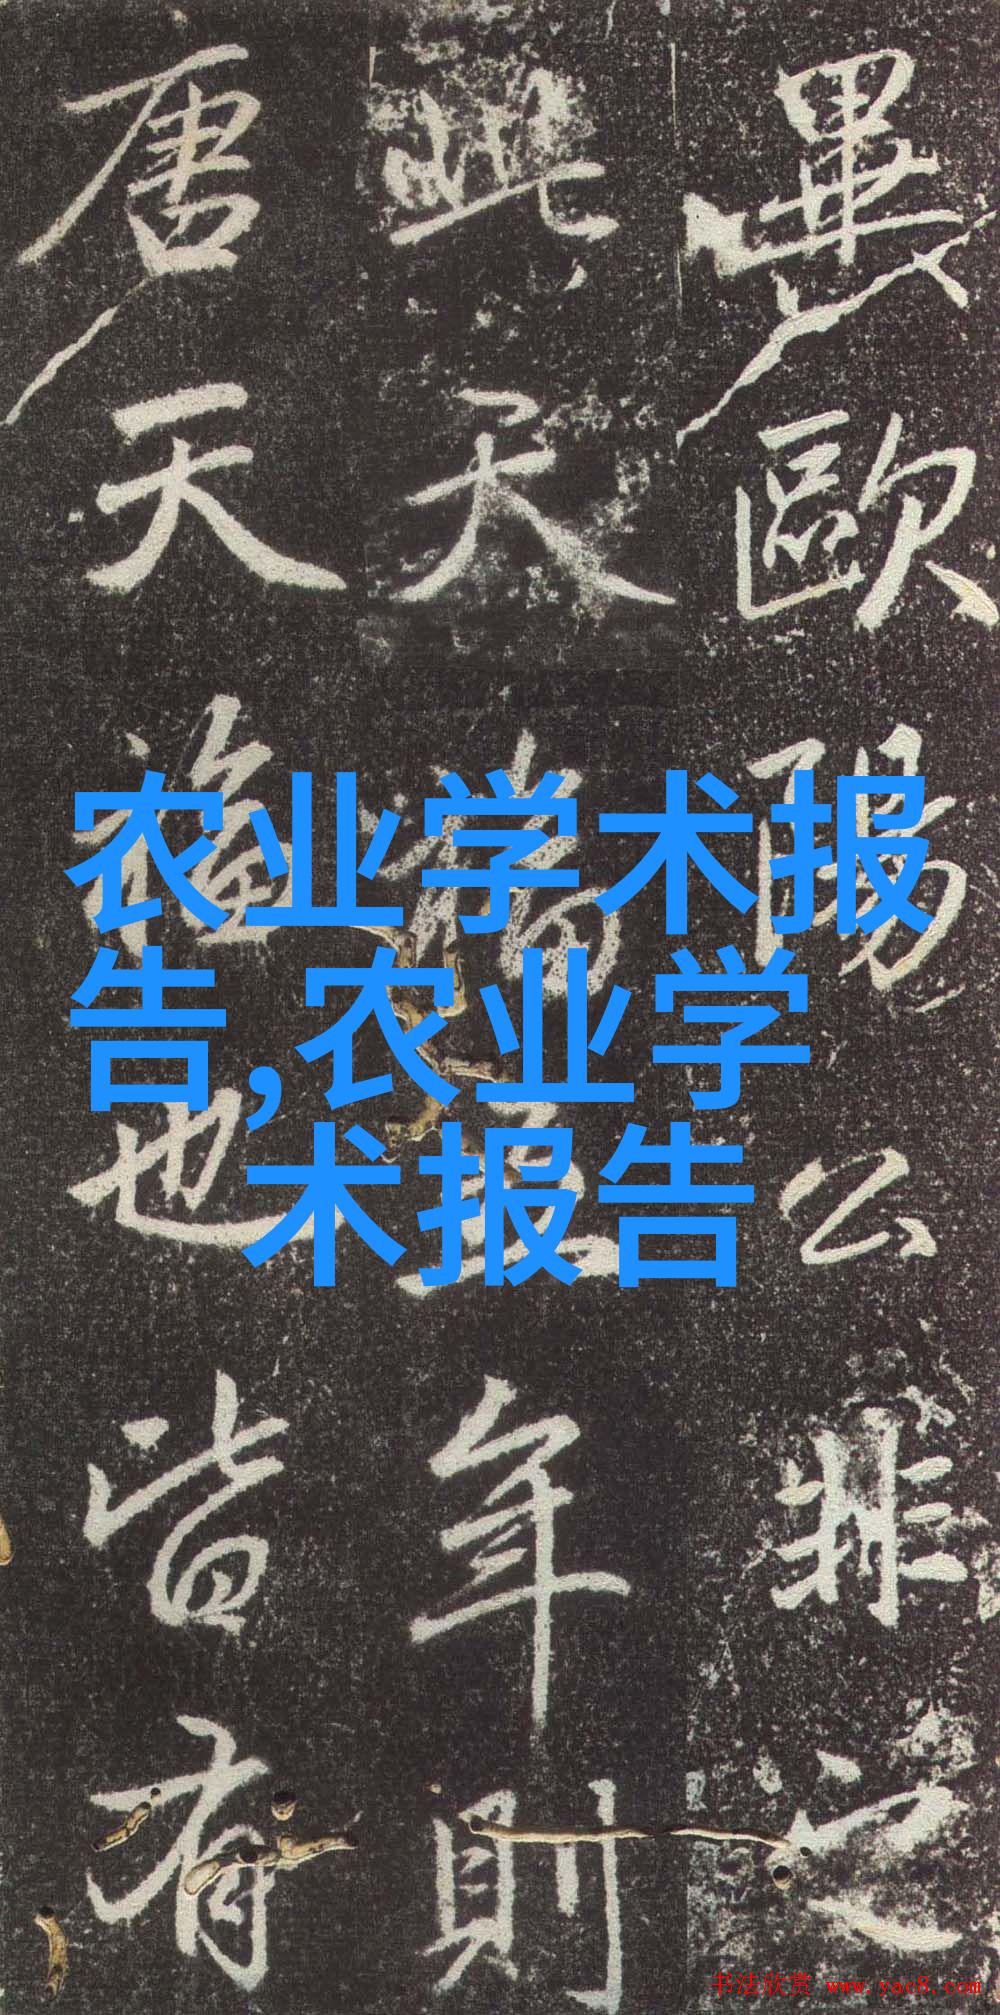 畢歐陽公非之
此天福五年則
唐天福也皆有
农业学术报
告,农业学
术报告
书法欣赏 www.yac8.com